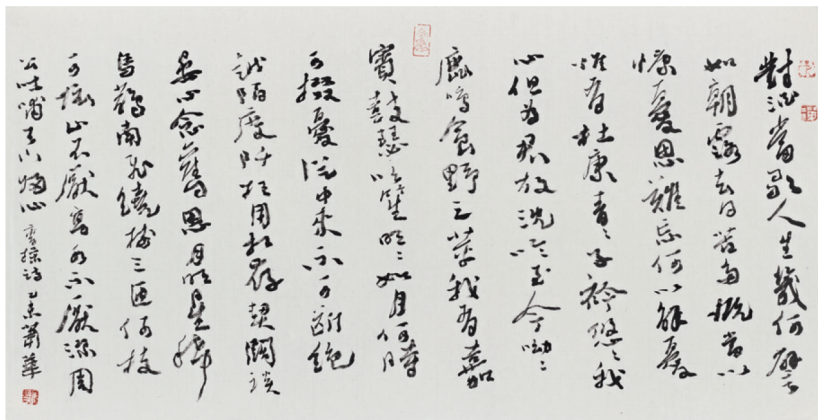 對酒當歌人生幾何譬
如朝露去日苦多慨當以
慷憂思難忘何以解憂
惟有杜康青〻子衿悠〻我
心但為君故沉吟至今呦〻
鹿鳴食野之苹我有嘉
賓鼓瑟吹笙明〻如月何時
可掇憂從中來不可斷絕
越陌度阡枉用相存契闊談
宴心念舊恩月明星稀
烏鵲南飛繞樹三匝何枝
可依山不厭高水不厭深周
公吐哺天下歸心 曹操詩 乙未蕭華